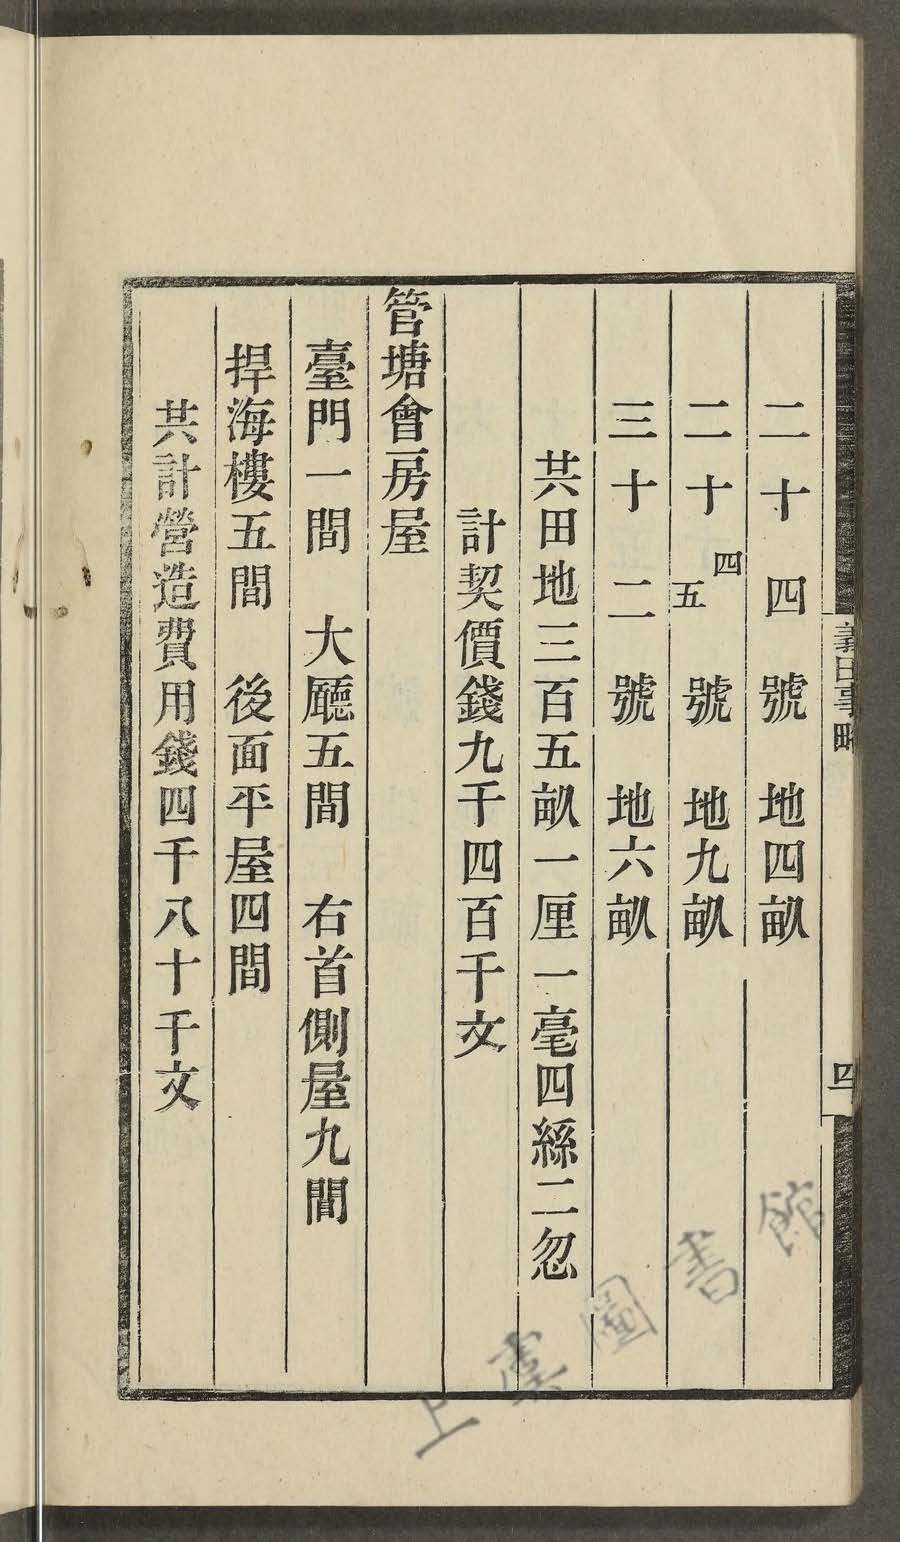 義田事略
四
二十四號　地四畝
二十四五號　地九畝
三十二號　地六畝
共田地三百五畝一厘一毫四絲二忽
計契價錢九千四百千文
管塘會房屋
臺門一間　大廳五間　右首側屋九間
捍海樓五間　後面平屋四間
共計營造費用錢四千八十千文
上虞圖書館